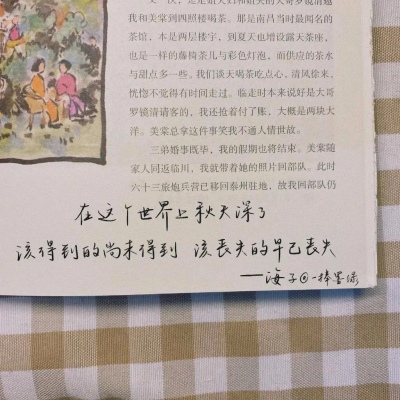 和我和美棠到四照楼喝茶。那是南昌当时最闻名的
茶馆，本是两层楼宇，到夏天也增设露天茶座，
也是一样的藤椅茶几与彩色灯泡，而供应的茶水
与甜点多一些。我们谈天喝茶吃点心，清风徐来，
恍惚不觉得有时间走过。临走时本来说好是大哥
罗镜清请客的，我还抢着付了账，大概是两块大
洋。美棠总拿这件事笑我不通人情世故。
三弟婚事既毕，我的假期也将结束。美棠随
家人同返临川，我就带着她的照片回部队。此时
六十三旅炮兵营已移回泰州驻地，故我回部队仍
在这个世界上秋天深了
该得到的尚未得到 该丧失的早已丧失
——海子@一棒墨绿